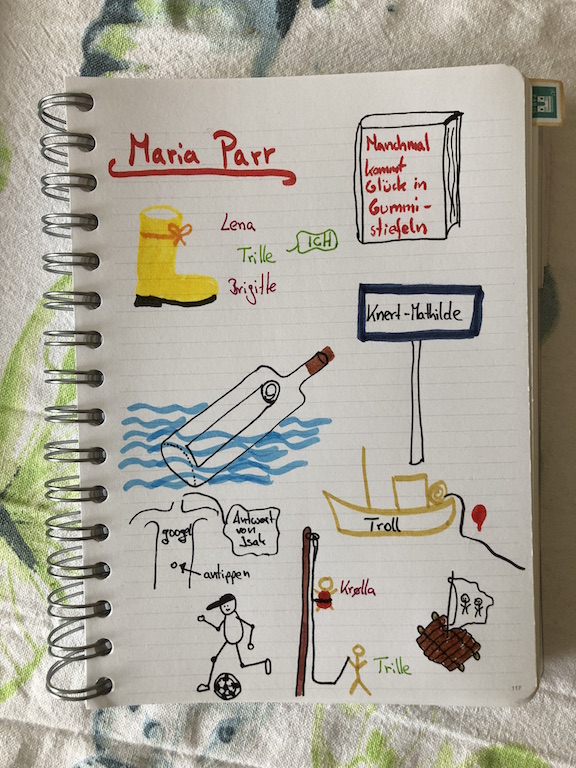 Maria Parr
Manchmal
kommt
Glück in
Gummi-
stiefeln
Lena
Trille
ICH
Brigitte
Knert-Mathilde
Troll
googel
Antwort
von
Isak
antippen
Krølla
Trille
117